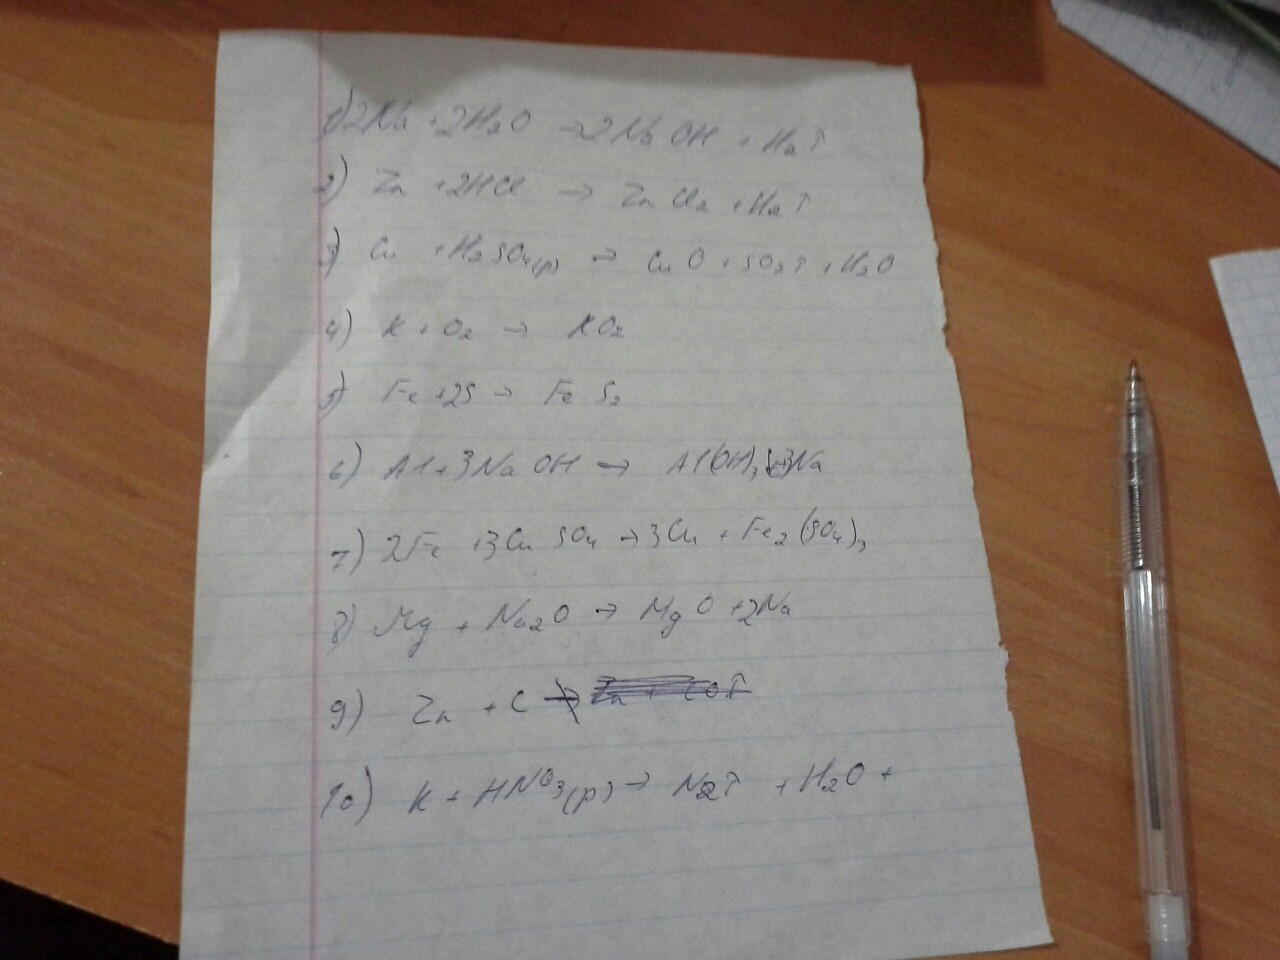 1) 2Na + 2H₂O → 2NaOH + H₂↑
2) Zn + 2HCl → ZnCl₂ + H₂↑
3) Cu + H₂SO₄(р) → CuO + SO₂↑ + H₂O
4) K + O₂ → KO₂
5) Fe + 2S → FeS₂
6) Al + 3NaOH → Al(OH)₃ + 3Na
7) 2Fe + 3CuSO₄ → 3Cu + Fe₂(SO₄)₃
8) Mg + Na₂O → MgO + 2Na
9) Zn + C
10) K + HNO₃(р) → N₂↑ + H₂O +